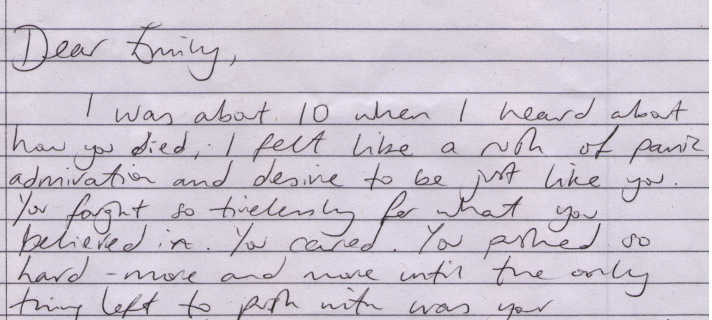 Dear Emily,
I was about 10 when I heard about
how you died, I felt like a rush of panic
admiration and desire to be just like you.
You fought so tirelessly for what you
believed in. You cared. You pushed so
hard - more and more until the only
thing left to push with was your